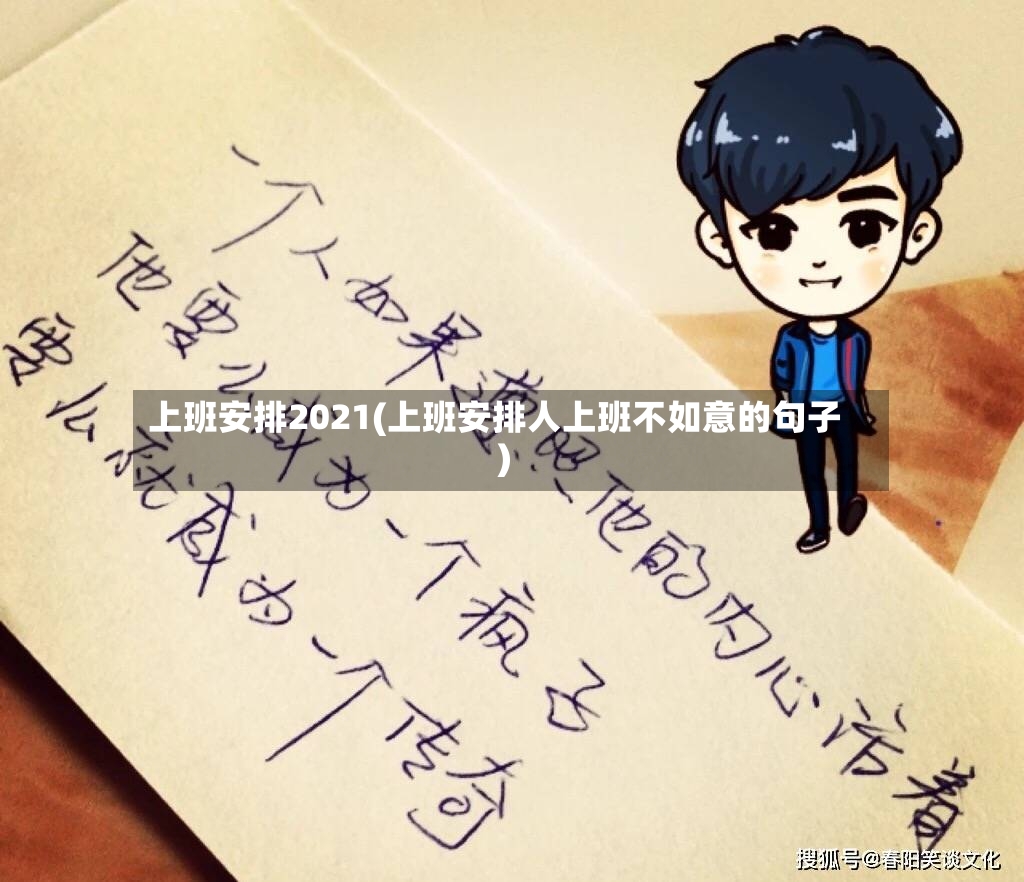 一个人如果遵照他的内心活着
他要么成为一个疯子
要么就成为一个传奇
上班安排2021(上班安排人上班不如意的句子
)
搜狐号@春阳笑谈文化